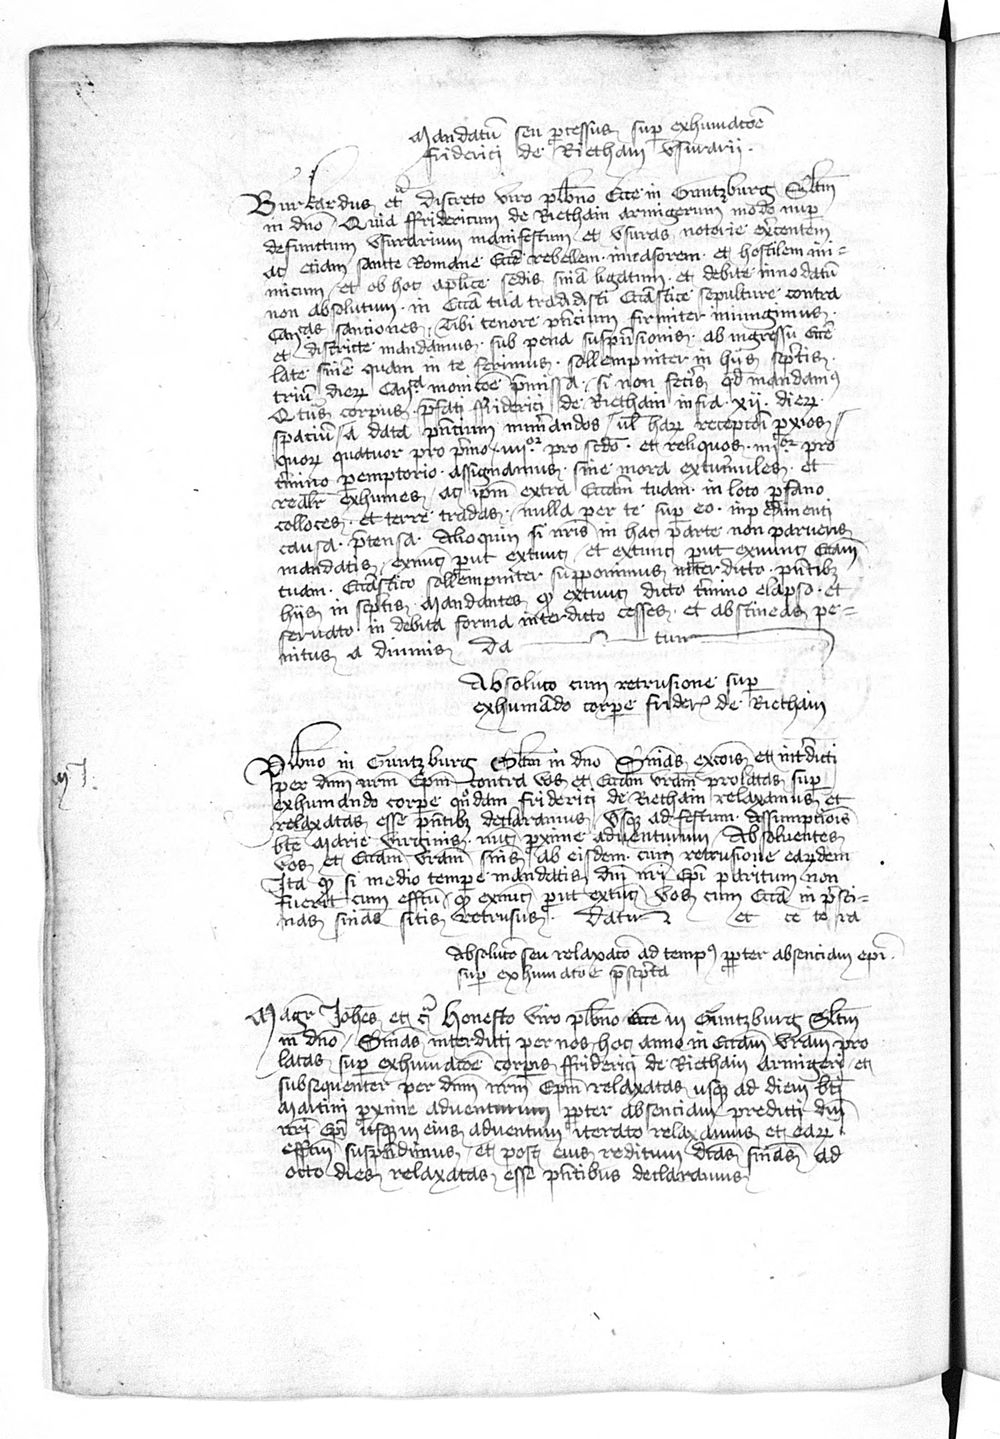 Mandatū seu pcessus sup exhumacōe
friderici de Rietham vsurarii.
Burkardus etc discreto viro plbno Eccē in Guntzburg Saltm
in dno Quia ffridericum de Rietham armigerum modo nup
defunctum vsurarium manifestum et vsuras notorie exercentem
ac etiam sancte Romane Eccē rebellem inuasorem et hostilem ini=
micum et ob hoc aplice sedis sniā ligatum et debite innodatū
non absolutum in Eccā tua tradidisti Eccāstice sepulture contra
Canōas sanctiones Tibi tenore pntium firmiter iniungimus
et districte mandamus sub pena suspēsionis ab ingressu Eccē
late snīe quam in te ferimus sollempniter in hijs scptis
triū dierum Canca monicōe pmissa si non feceris qd mandamus
Qtus corpus pfati ffriderici de Rietham infra xij dierum
spaciū a data pntium numandos vl harum receptōi pximos
quorum quatuor pro pmo iiijor pro scdo et reliquos iiijor pro
tmino pemptorio assignamus sine mora extumules et
realr exhumes ac ipm extra Eccām tuam in loco pfano
colloces et terre tradas nulla per te sup eo inpedimenti
causa ptensa Alioquin si nris in hac parte non parueris
mandatis exnuc put extunc et extunc put exnunc Eccām
tuam Eccāstico sollempniter supponimus interdicto pntibz
hijs in scptis Mandantes qd extunc dicto tmino elapso et
seruato in debita forma interdicto cesses et abstineas pe=
nitus a diuinis Da tum
Absolucō cum retrusione sup
exhumādo corpe frider de Rietham
Plbno in Guntzburg Saltm in dno Snīas excōis et intdicti
per dnm nrm Epm contra vos et Eccām vram prolatas sup
exhumando corpe qndam friderici de Rietham relaxamus et
relaxatas esse pntibz declaramus vsqz ad festum Assumpcōis
bte Marie virginis nuc pxime aduenturum Absoluentes
vos et Eccām vram snīs ab eisdem cum retrusione earundem
Ita qd si medio tempe mandatis dni nri Epi paritum non
fuerit cum effcu qd exnuc put extuc vos cum Eccā in psti=
nas snīas sitis retrusus Datur et ce to ra
Absolucō seu relaxacō ad tempus ppter absenciam epi
sup exhumacōe pscpta
Magr Johes etc Honesto viro plbno Eccē in Guntzburg Saltm
in dno Snīas interdicti per nos hoc anno in Eccām vram pro
latas sup exhumacōe corpis ffriderici de Rietham armigeri et
subsequenter per dnm nrm Epm relaxatas vsqz ad diem bti
Martini pxime aduenturum ppter absenciam predicti dni
nri Epi vsqz in eius aduentum iterato relaxamus et earum
effcm suspendimus et post eius reditum dcas snīas ad
octo dies relaxatas esse pntibus declaramus